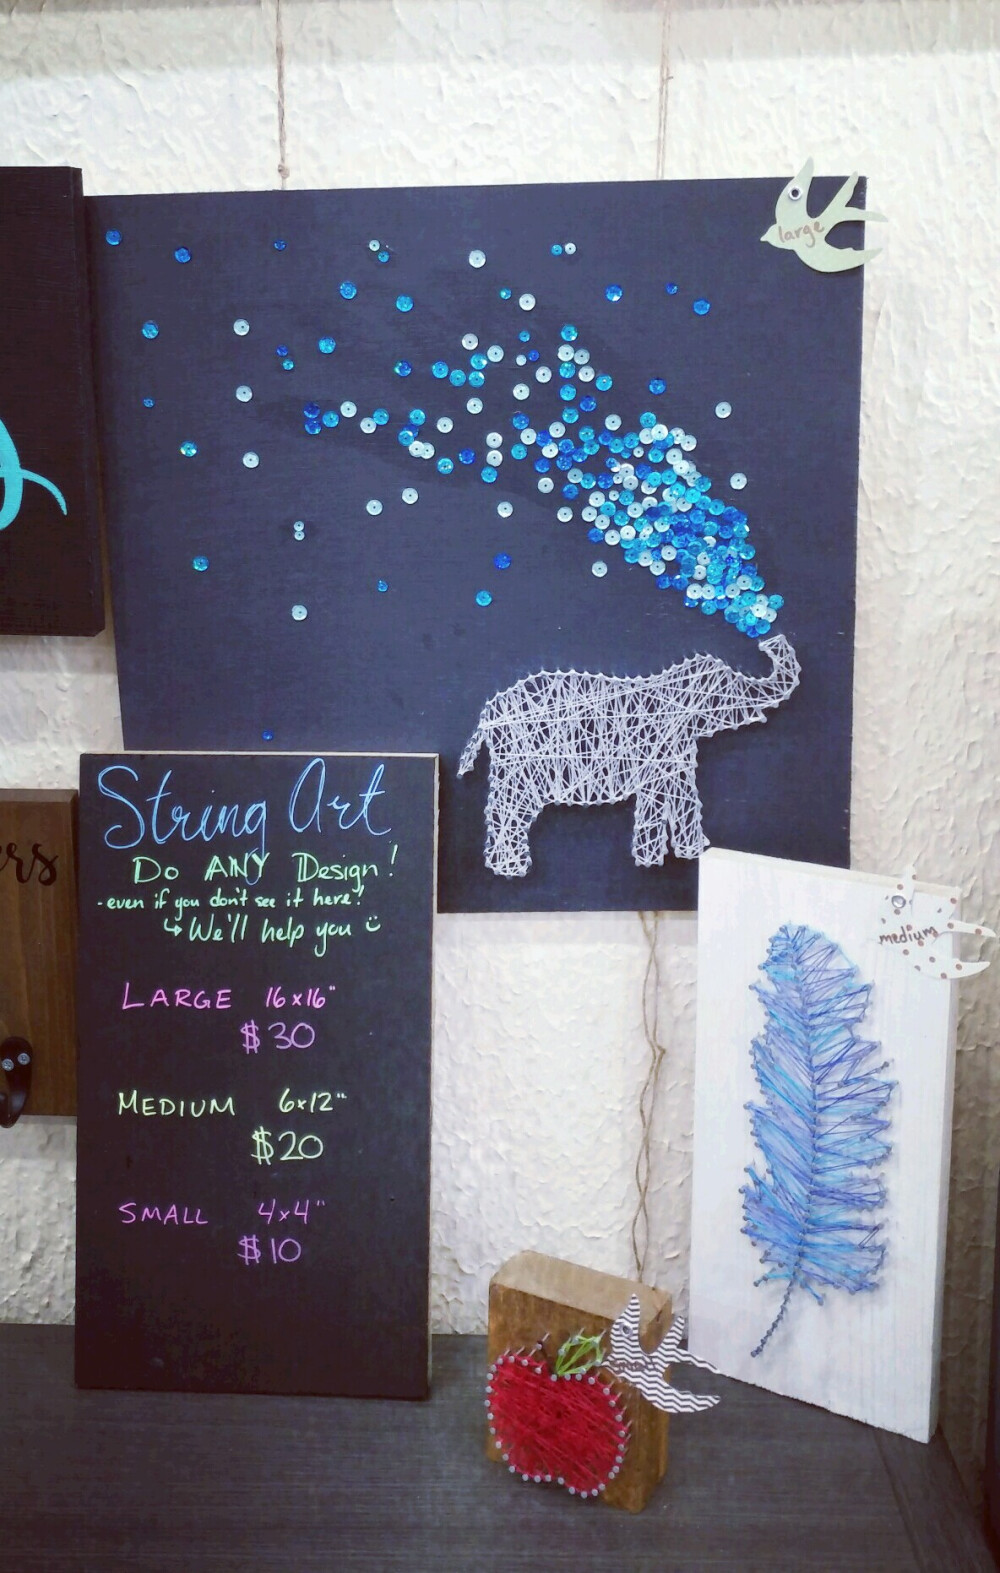 large
String Art
Do ANY Design!
-even if you don't see it here!
↳ We'll help you :)
LARGE 16x16"
$30
MEDIUM 6x12"
$20
SMALL 4x4"
$10
medium